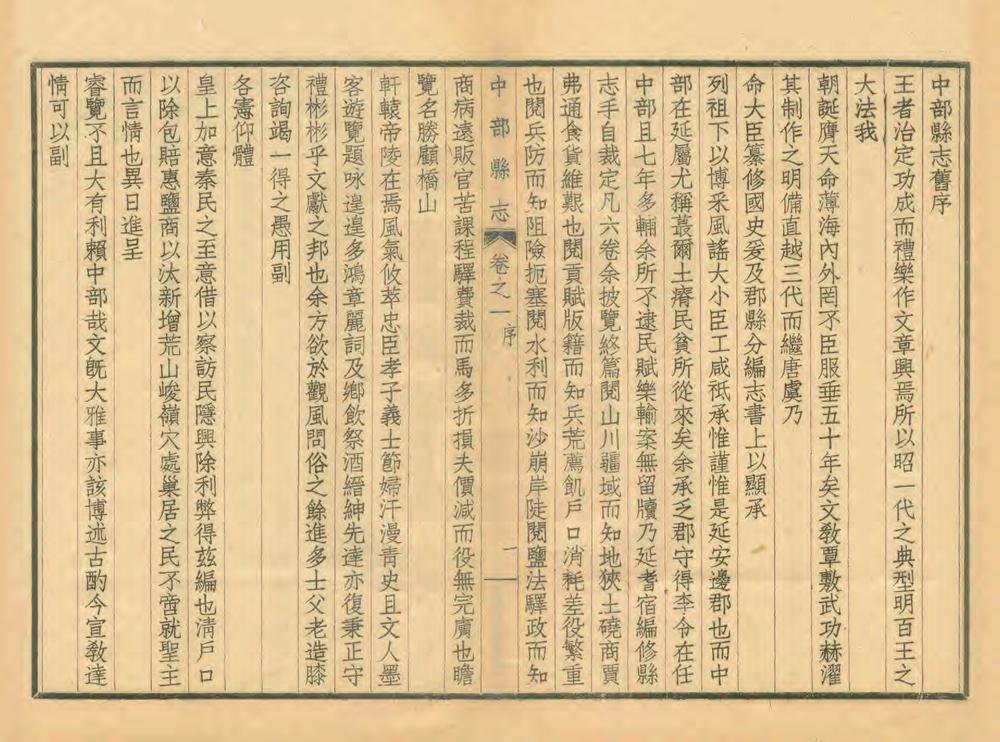 中部縣志舊序
王者治定功成而禮樂作文章興焉所以昭一代之典型明百王之
大法我
朝誕膺天命薄海內外罔不臣服垂五十年矣文敎覃敷武功赫濯
其制作之明備直越三代而繼唐虞乃
命大臣纂修國史爰及郡縣分編志書上以顯承
列祖下以博采風謠大小臣工咸祗承惟謹惟是延安邊郡也而中
部在延屬尤稱蕞爾土瘠民貧所從來矣余承乏郡守得李令在任
中部且七年多輔余所不逮民賦樂輸案無留牘乃延耆宿編修縣
志手自裁定凡六卷余披覽終篇閱山川疆域而知地狹土磽商賈
弗通食貨維艱也閱貢賦版籍而知兵荒薦飢戶口消耗差役繁重
也閱兵防而知阻險扼塞閱水利而知沙崩岸陡閱鹽法驛政而知
中部縣志 卷之一 序 一
商病遠販官苦課程驛費裁而馬多折損夫價減而役無完膚也瞻
覽名勝顧橋山
軒轅帝陵在焉風氣攸萃忠臣孝子義士節婦汗漫青史且文人墨
客遊覽題咏遑遑多鴻章麗詞及鄉飲祭酒縉紳先達亦復秉正守
禮彬彬乎文獻之邦也余方欲於觀風問俗之餘進多士父老造膝
咨詢竭一得之愚用副
各憲仰體
皇上加意秦民之至意借以察訪民隱興除利弊得玆編也淸戶口
以除包賠惠鹽商以汰新增荒山峻嶺穴處巢居之民不啻就聖主
而言情也異日進呈
睿覽不且大有利賴中部哉文旣大雅事亦該博述古酌今宣敎達
情可以副